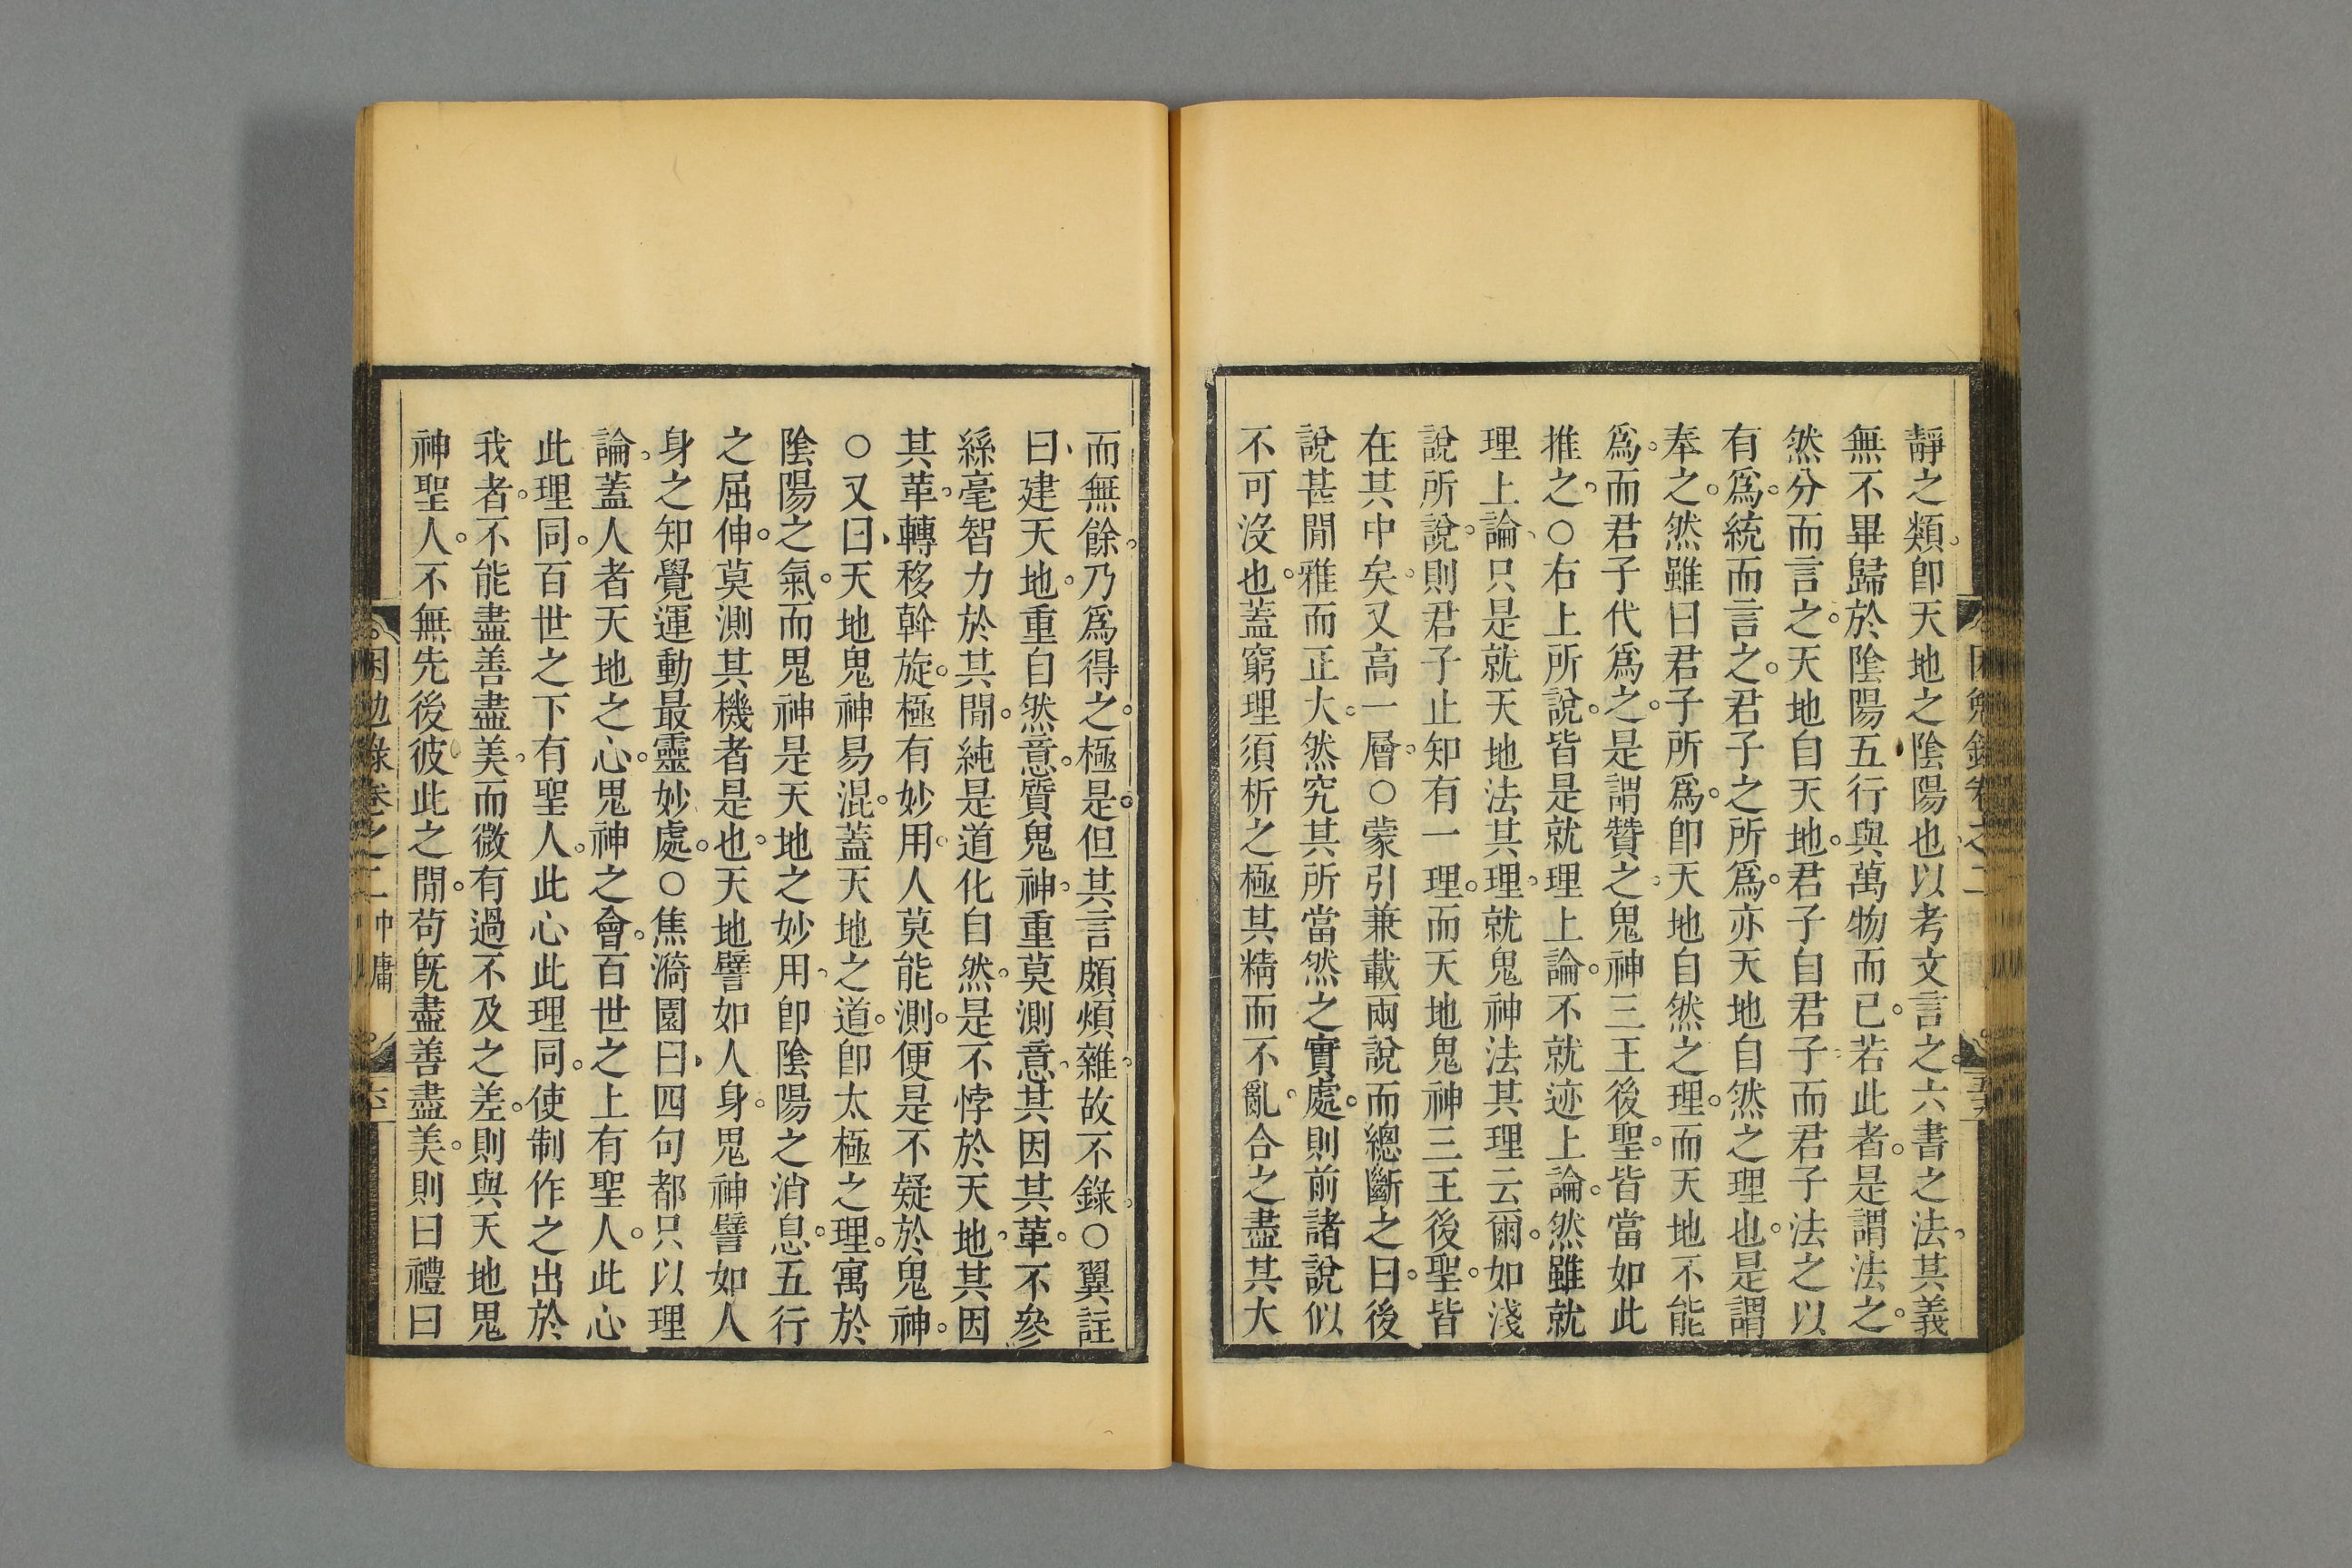 靜之類卽天地之陰陽也以考文言之六書之法其義
無不畢歸於陰陽五行與萬物而已若此者是謂法之
然分而言之天地自天地君子自君子而君子法之以
有爲統而言之君子之所爲亦天地自然之理也是謂
奉之然雖曰君子所爲卽天地自然之理而天地不能
爲而君子代爲之是謂贊之鬼神三王後聖皆當如此
推之○右上所說皆是就理上論不就迹上論然雖就
理上論只是就天地法其理就鬼神法其理云爾如淺
說所說則君子止知有一理而天地鬼神三王後聖皆
在其中矣又高一層○蒙引兼載兩說而總斷之曰後
說甚閒雅而正大然究其所當然之實處則前諸說似
不可沒也蓋窮理須析之極其精而不亂合之盡其大
而無餘乃爲得之極是但其言頗煩雜故不錄○翼註
曰建天地重自然意質鬼神重莫測意其因其革不參
絲毫智力於其閒純是道化自然是不悖於天地其因
其革轉移斡旋極有妙用人莫能測便是不疑於鬼神
○又曰天地鬼神易混蓋天地之道卽太極之理寓於
陰陽之氣而鬼神是天地之妙用卽陰陽之消息五行
之屈伸莫測其機者是也天地譬如人身鬼神譬如人
身之知覺運動最靈妙處○焦漪園曰四句都只以理
論蓋人者天地之心鬼神之會百世之上有聖人此心
此理同百世之下有聖人此心此理同使制作之出於
我者不能盡善盡美而微有過不及之差則與天地鬼
神聖人不無先後彼此之閒苟旣盡善盡美則曰禮曰
困勉錄卷之二 中庸